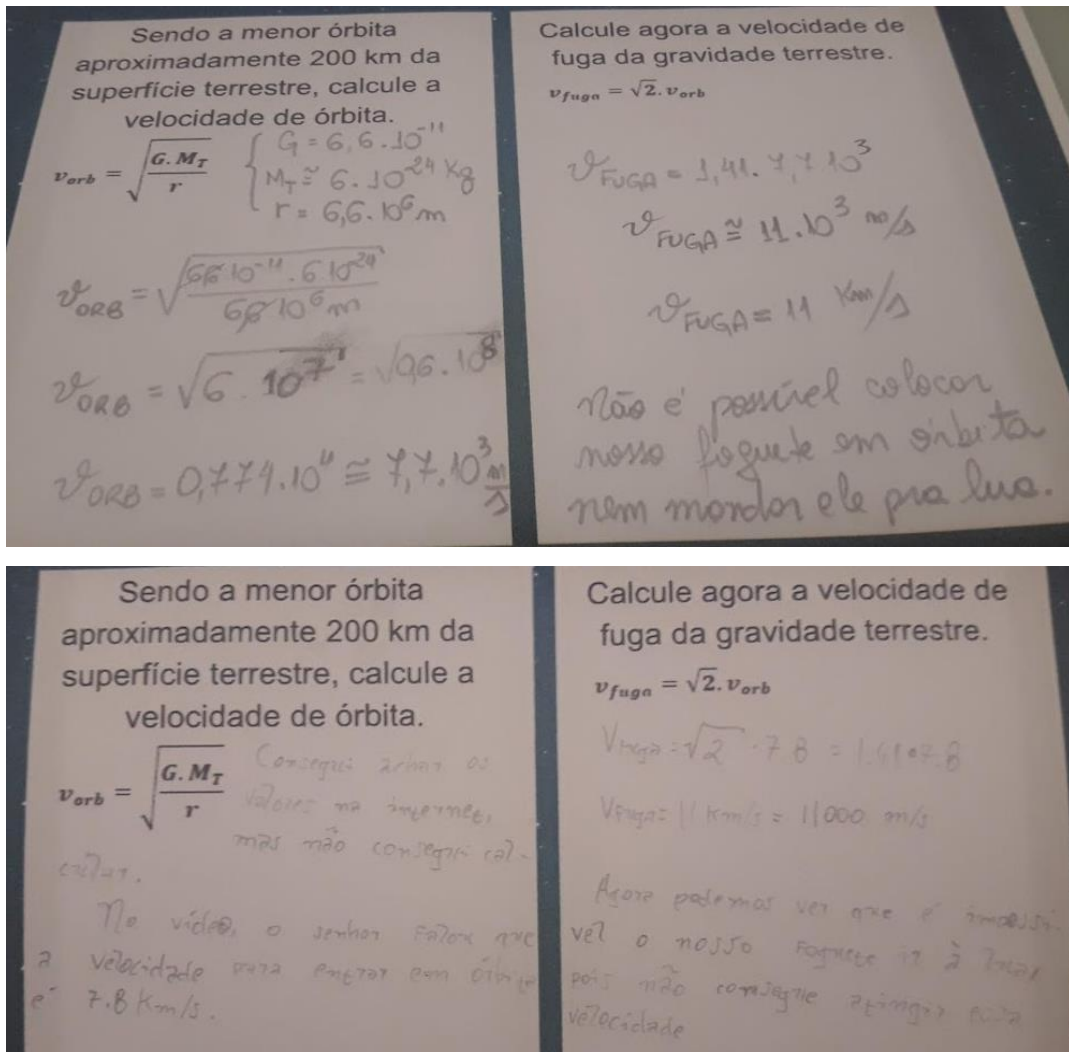 Sendo a menor órbita
aproximadamente 200 km da
superfície terrestre, calcule a
velocidade de órbita.
v_orb = √(G.M_T / r)
G = 6,6.10^-11
M_T ≅ 6.10^-24 Kg
r = 6,6.10^6 m
V_ORB = √(6,6 10^-11 . 6 10^24 / 6,6 10^6 m)
V_ORB = √(6 . 10^7) = √(0,6.10^8)
V_ORB = 0,774.10^4 ≅ 7,7.10^3 m/s
Calcule agora a velocidade de
fuga da gravidade terrestre.
v_fuga = √2.v_orb
V_FUGA = 1,41. 7,7 10^3
V_FUGA ≅ 11.10^3 m/s
V_FUGA = 11 Km/s
Não é possível colocar
nosso foguete em órbita
nem mandar ele pra lua.
Sendo a menor órbita
aproximadamente 200 km da
superfície terrestre, calcule a
velocidade de órbita.
v_orb = √(G.M_T / r)
Consegui achar os
valores na internet,
mas não consegui cal-
cular.
No vídeo, o senhor falou que
a velocidade para entrar em órbita
é 7.8 Km/s.
Calcule agora a velocidade de
fuga da gravidade terrestre.
v_fuga = √2.v_orb
V_fuga = √2 . 7.8 = 1.41•7.8
V_fuga = 11 Km/s = 11000 m/s
Agora podemos ver que é impossí-
vel o nosso foguete ir à lua,
pois não consegue atingir
velocidade